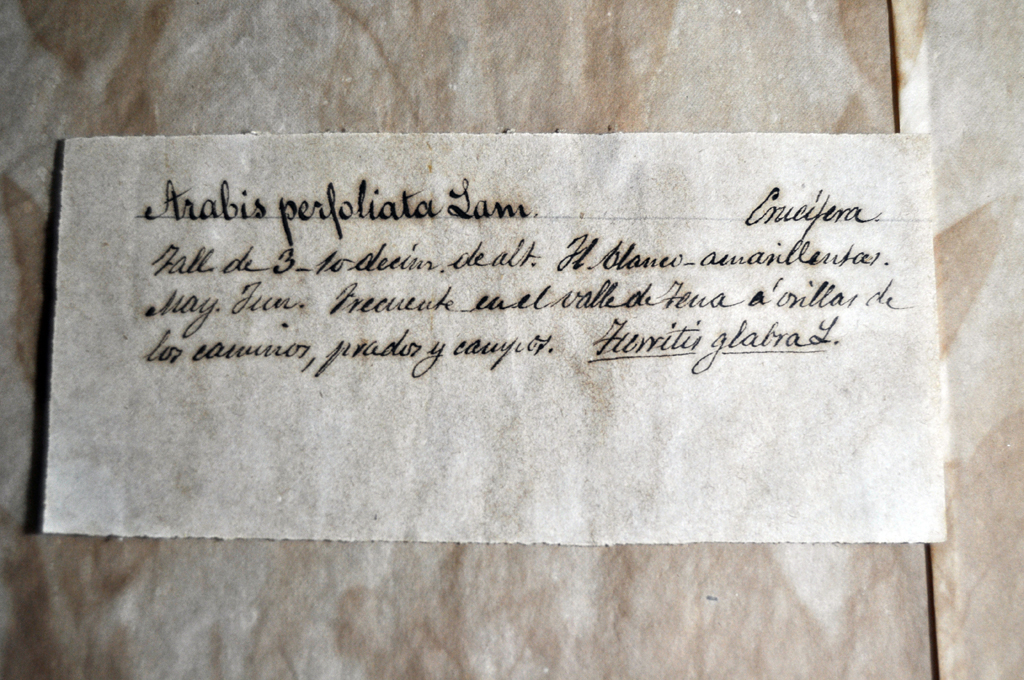 Arabis perfoliata Lam. Crucífera.
Tall. de 3-10 decím. de alt. Fl. blanco-amarillentas.
May. Jun. Frecuente en el valle de Tena á orillas de
los caminos, prados y campos. Turritis glabra L.